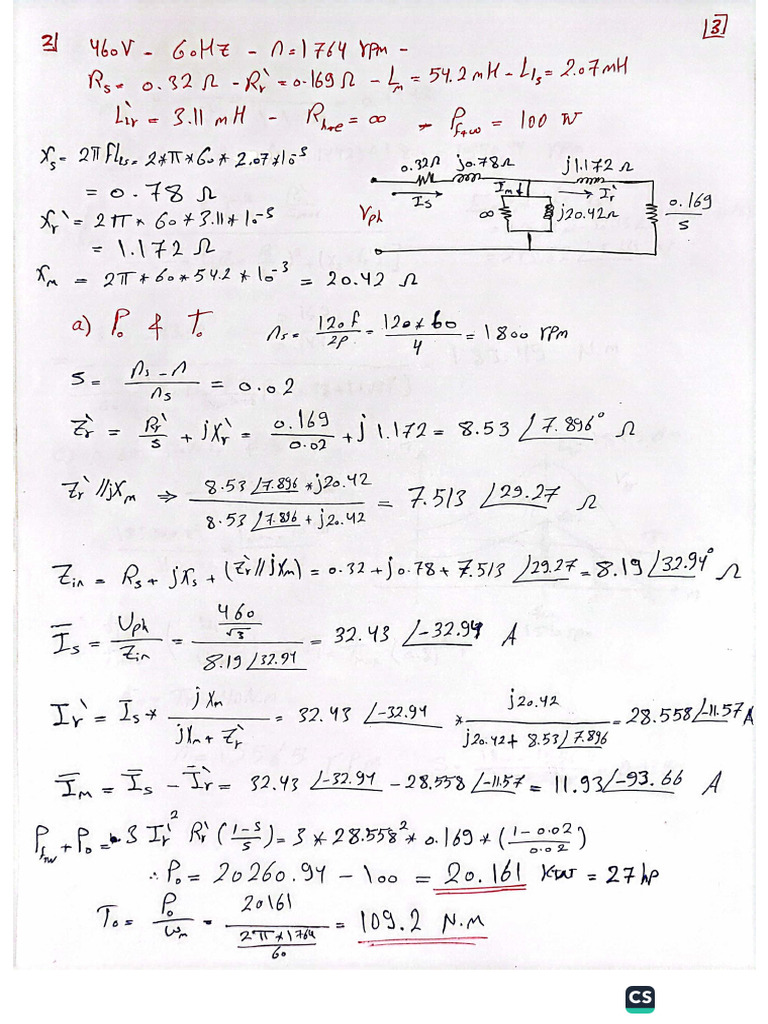 [3]
2) 460V - 60HZ - n=1764 rpm -
Rs = 0.32 Ω - Rr` = 0.169 Ω - Lm = 54.2 mH - Lls = 2.07 mH
Llr` = 3.11 mH - Rh+e = ∞ - Pf+w = 100 W
Xs = 2πfLls = 2*π*60*2.07*10^-3
= 0.78 Ω
Xr` = 2π*60*3.11*10^-3
= 1.172 Ω
Xm = 2π*60*54.2*10^-3 = 20.42 Ω
0.32Ω j0.78Ω j1.172 Ω
Is Im Ir`
Vph ∞ j20.42Ω 0.169/s
a) Po & To ns = 120f/2p = 120*60/4 = 1800 rpm
s = (ns - n)/ns = 0.02
Zr` = Rr`/s + jXr` = 0.169/0.02 + j 1.172 = 8.53 ∠7.896° Ω
Zr` // jXm ⇒ (8.53 ∠7.896 * j20.42)/(8.53 ∠7.896 + j20.42) = 7.513 ∠29.27 Ω
Zin = Rs + jXs + (Zr` // jXm) = 0.32 + j0.78 + 7.513 ∠29.27 = 8.19 ∠32.94° Ω
Is = Uph/Zin = (460/√3)/(8.19 ∠32.94) = 32.43 ∠-32.94 A
Ir` = Is * jXm/(jXm + Zr`) = 32.43 ∠-32.94 * j20.42/(j20.42 + 8.53 ∠7.896) = 28.558 ∠-11.57 A
Im = Is - Ir` = 32.43 ∠-32.94 - 28.558 ∠-11.57 = 11.93 ∠-93.66 A
Pf+w + Po = 3 Ir`² Rr` ((1-s)/s) = 3 * 28.558² * 0.169 * ((1-0.02)/0.02)
∴ Po = 20260.94 - 100 = 20.161 KW = 27 hp
To = Po/ωm = 20161/(2π*1764/60) = 109.2 N.m
CS